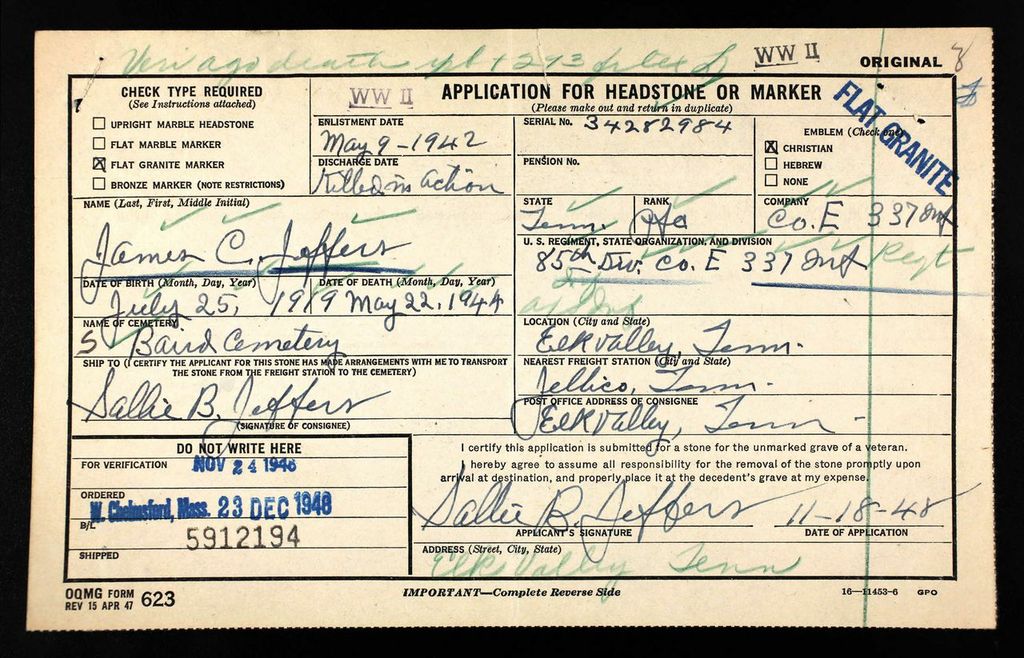 WW II
ORIGINAL
CHECK TYPE REQUIRED
(See Instructions attached)
UPRIGHT MARBLE HEADSTONE
FLAT MARBLE MARKER
FLAT GRANITE MARKER
BRONZE MARKER (NOTE RESTRICTIONS)
WW II
APPLICATION FOR HEADSTONE OR MARKER
(Please make out and return in duplicate)
FLAT GRANITE
ENLISTMENT DATE
May 9-1942
DISCHARGE DATE
Killed in action
SERIAL No. 34282984
PENSION No.
EMBLEM (Check one)
CHRISTIAN
HEBREW
NONE
NAME (Last, First, Middle Initial)
James C. Jeffers
STATE
Tenn.
RANK
Pfc
COMPANY
Co. E 337 Inf
U. S. REGIMENT, STATE ORGANIZATION, AND DIVISION
85th Div. Co. E 337 Inf Regt
DATE OF BIRTH (Month, Day, Year)
July 25, 1919
DATE OF DEATH (Month, Day, Year)
May 22, 1944
NAME OF CEMETERY
Baird Cemetery
LOCATION (City and State)
Elk Valley, Tenn.
SHIP TO (I CERTIFY THE APPLICANT FOR THIS STONE HAS MADE ARRANGEMENTS WITH ME TO TRANSPORT
THE STONE FROM THE FREIGHT STATION TO THE CEMETERY)
Sallie B. Jeffers
(SIGNATURE OF CONSIGNEE)
NEAREST FREIGHT STATION (City and State)
Jellico, Tenn.
POST OFFICE ADDRESS OF CONSIGNEE
Elk Valley, Tenn
DO NOT WRITE HERE
FOR VERIFICATION
NOV 24 1948
ORDERED
W. Chelmsford, Mass. 23 DEC 1948
B/L
5912194
SHIPPED
I certify this application is submitted for a stone for the unmarked grave of a veteran.
I hereby agree to assume all responsibility for the removal of the stone promptly upon
arrival at destination, and properly place it at the decedent's grave at my expense.
Sallie B. Jeffers 11-18-48
APPLICANT'S SIGNATURE
DATE OF APPLICATION
ADDRESS (Street, City, State)
Elk Valley Tenn
OQMG FORM
REV 15 APR 47 623
IMPORTANT—Complete Reverse Side
16—11453-6 GPO